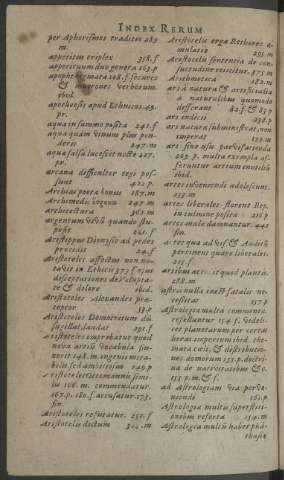 INDEX RERUM
per Aphorismos traditos 289
m.
appetitus triplex 358.f
appetituum duo genera 163.p
apophthegmata 168.f. secures
& mucrones verborum
ibid.
apotheosis apud Ethnicos 49.
pr.
aqua in summo posita 241.f
aqua quam vinum plus pon-
deris 247.m
aqua salsa lucescit nocte 227.
pr.
arcana difficulter tegi pos-
sunt 421.p.
Archias poeta bonus 187.m
Archimedis cygnus 247.m
architectura 362.m
argentum vivum quando
pus 261.f
Aristippus Dionysio ad pedes
procidit 24.f
Aristoteles affectus non no-
tavit in Ethicis 373.f ejus
dissertationes de volupta-
te & dolore ibid.
Aristoteles Alexandri præ-
ceptor 39.p
Aristoteles Democritum
sugillat, laudat 291.f
Aristoteles exprobrat quod
nova artis vocabula fin-
xerit 148.m. ingenii mira-
bilis sed ambitiosi 149.p
Aristoteles Ottomannis simi-
lis 166.m. commendatur.
167.p. 180.f. accusatur. 173.
fin.
Aristoteles refutatur. 251.f
Aristotelis dictum 300.m
Aristotelis erga Rhetores
mulatio 295.m
Aristotelis sententia de con-
suetudine rejicitur. 375.m
Arithmetica 182.m
ars à natura & artificialia
à naturalibus quomodo
differant 82.f. & 83.p
ars endicii 238.p
ars natura subministrat, non
imperat 139.m
ars sine usu parvi facienda
269.p. multa exempla
feruntur artium
ibid.
artes inveniendi adolescunt.
233.m
artes liberales florent Rep.
in culmine posita 216.p
artes malæ damnantur. 441
fin.
artes quæ ad visû & Auditû
pertinent quare liberales.
215.f
artium arti. sicut plantis.
288.m
astris nulla inest fatalis ne-
cessitas 157.p
Astrologia multa commenta
refelluntur 154.f. videli-
cet planetarum per certas
horas imperium ibid. the-
mata cœli, & distributio-
nes domorum 155.p. doctri-
na de nativitatibus &c.
155.p.m. & f.
ad Astrologiam via per ve-
niendi 161.p
Astrologia multis superstiti-
onibus referta 154.m
Astrologia multis haber phã-
thasiæ